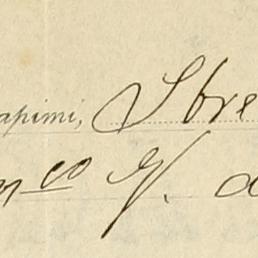 apimi, Sbre
n co G. d